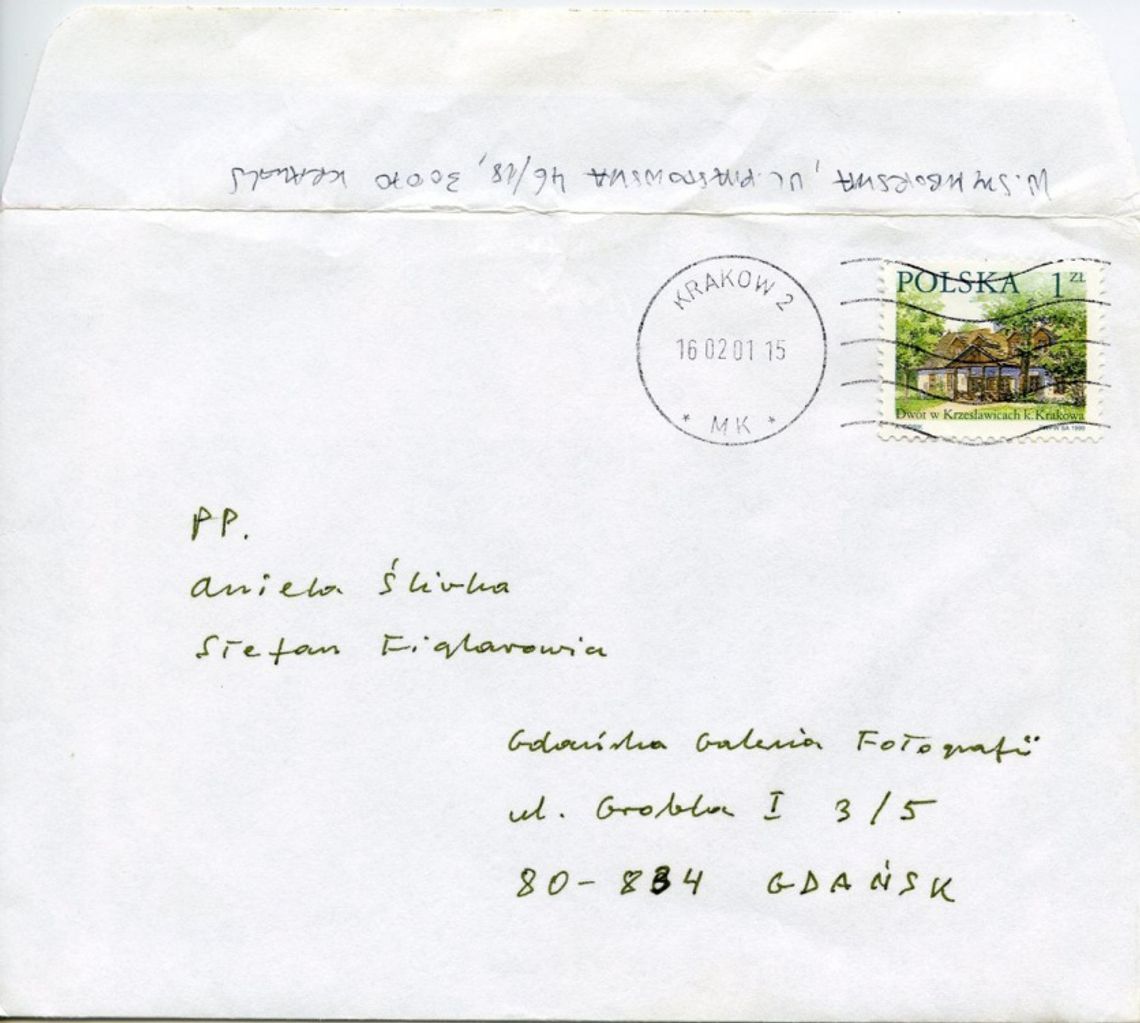 W. SZYMBORSKA, UL. PIASTOWSKA 46/18, 30070 KRAKÓW
KRAKOW 2
16 02 01 15
* MK *
POLSKA 1 ZŁ
Dwór w Krzesławicach k. Krakowa
PP.
Aniela Śliwka
Stefan Figlarowicz
Gdańska Galeria Fotografii
ul. Grobla I 3/5
80-834 GDAŃSK